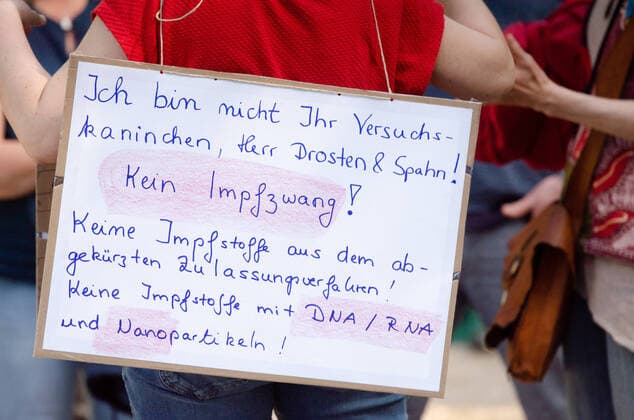 Ich bin nicht Ihr Versuchs-
kaninchen, Herr Drosten & Spahn!
Kein Impfzwang!
Keine Impfstoffe aus dem ab-
gekürzten Zulassungverfahren!
Keine Impfstoffe mit DNA / RNA
und Nanopartikeln!